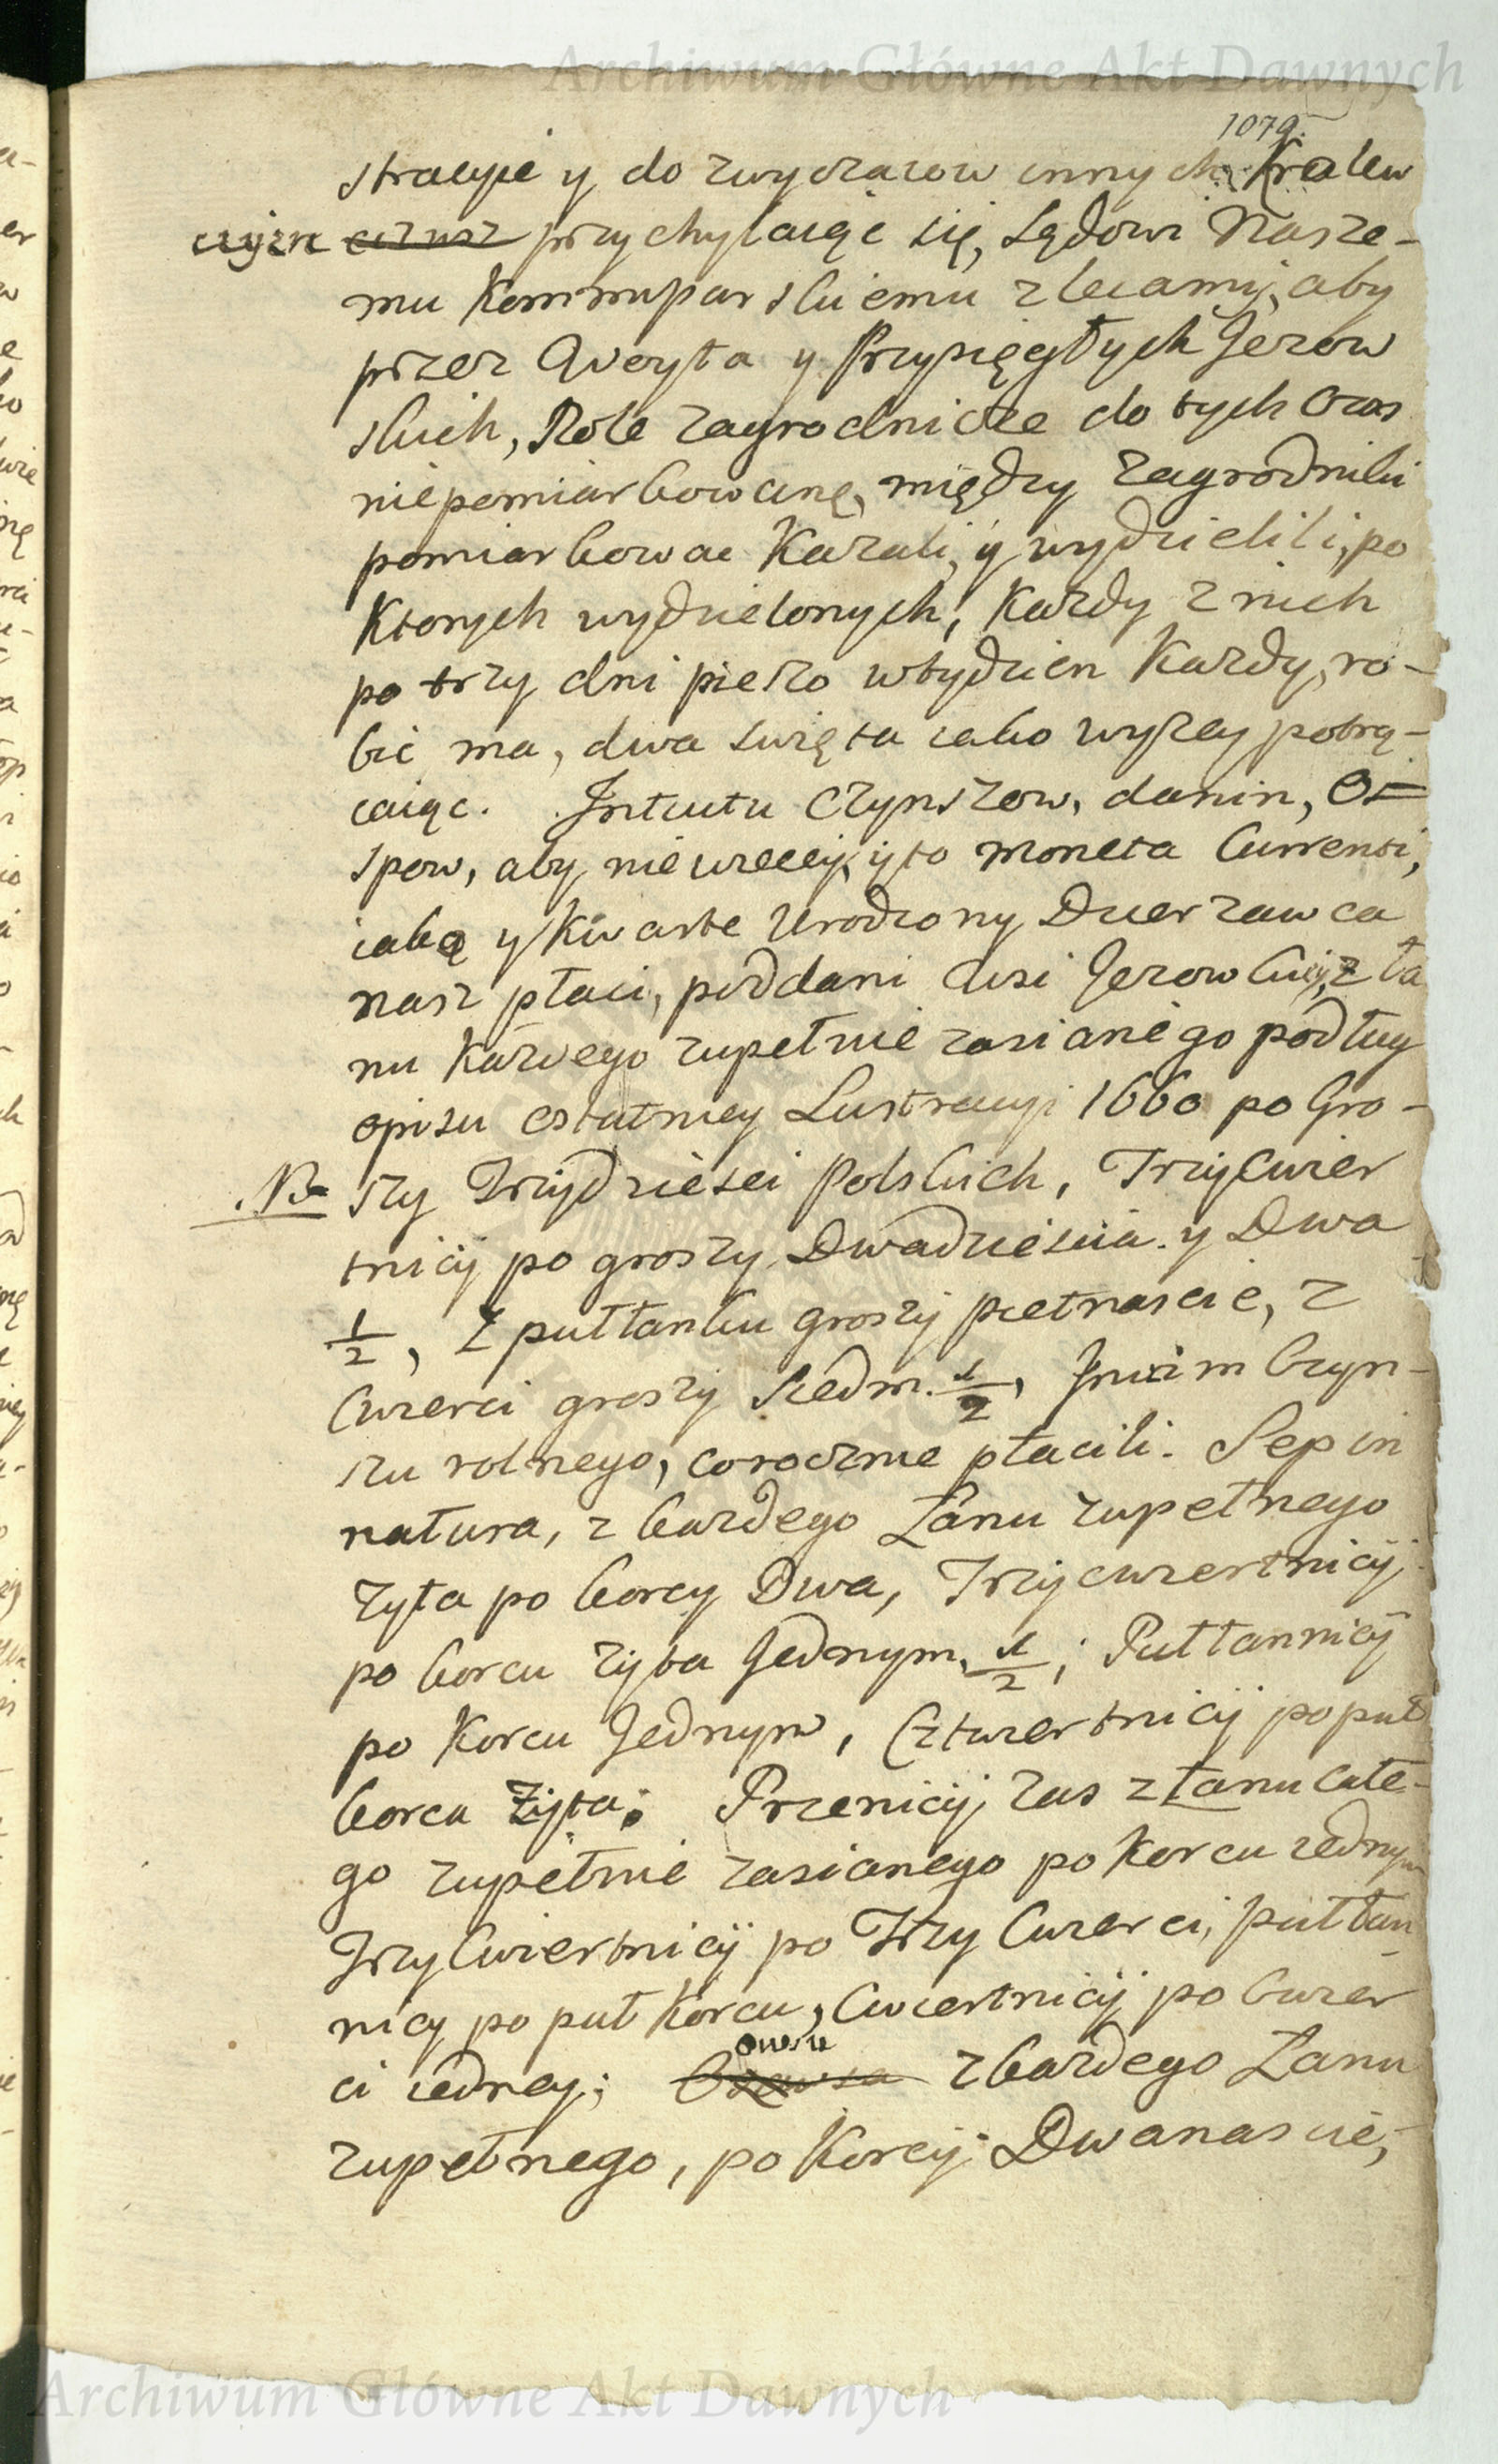 Archiwum Główne Akt Dawnych
1079.
stracyie y do zwyczaiow innych Krolew
czyzn czusz przychylaiąc się, Sądowi Nasze-
mu Kommiparskiemu zlecamÿ, aby
przez Woyta y Przysięgłych Jezow
skich, Role zagrodnicze do tych czas
niepomiarkowane, między Zagrodniki
pomiarkowac Kazali, ÿ wydzielili, po
Ktorych wydzielonych, Kazdy z nich
po trzy dni pieszo wtydzien Kazdy, ro-
bic ma, dwa swięta iako wyzey potrą-
caiąc. Intuitu Czynszow, danin, Os=
spow, aby niewiecey, ÿto moneta Currenti,
iaką y Kwarte Urodzony Dzierzawca
nasz płaci, poddani Wsi Jezowskiey, z Ła
nu Kazdego zupełnie zasianego podług
opisu ostatniey Lustracyi 1660 po Gro-
NB szy Trzydziesci Polskich, Trzycwier
tnicÿ po groszy Dwadziescia y Dwa
1/2, Z pułłanku groszÿ pietnascie, z
Cwierci groszy Siedm. 1/2, Innim Czyn-
szu rolnego, corocznie płacili. Sep in
natura, z kazdego Łanu zupełnego
zyta po korcy Dwa, Trzÿcwiertnicÿ
po korcu zÿta Jednym 1/2; Pułłannicÿ
po Korcu Jednym, Cztwiertnicÿ popuł
korca Zÿta; Przenicÿ, zas z Łanu Całe-
go zupełnie zasianego po Korcu iednym
TrzyCwiertnicÿ po Trzy Cwierci, pułłan
nicy po puł Korcu, Cwiertnicÿ po Cwier
owsu
ci iedney; zkazdego Łanu
zupełnego, po Korcÿ Dwanascie,
Archiwum Główne Akt Dawnych